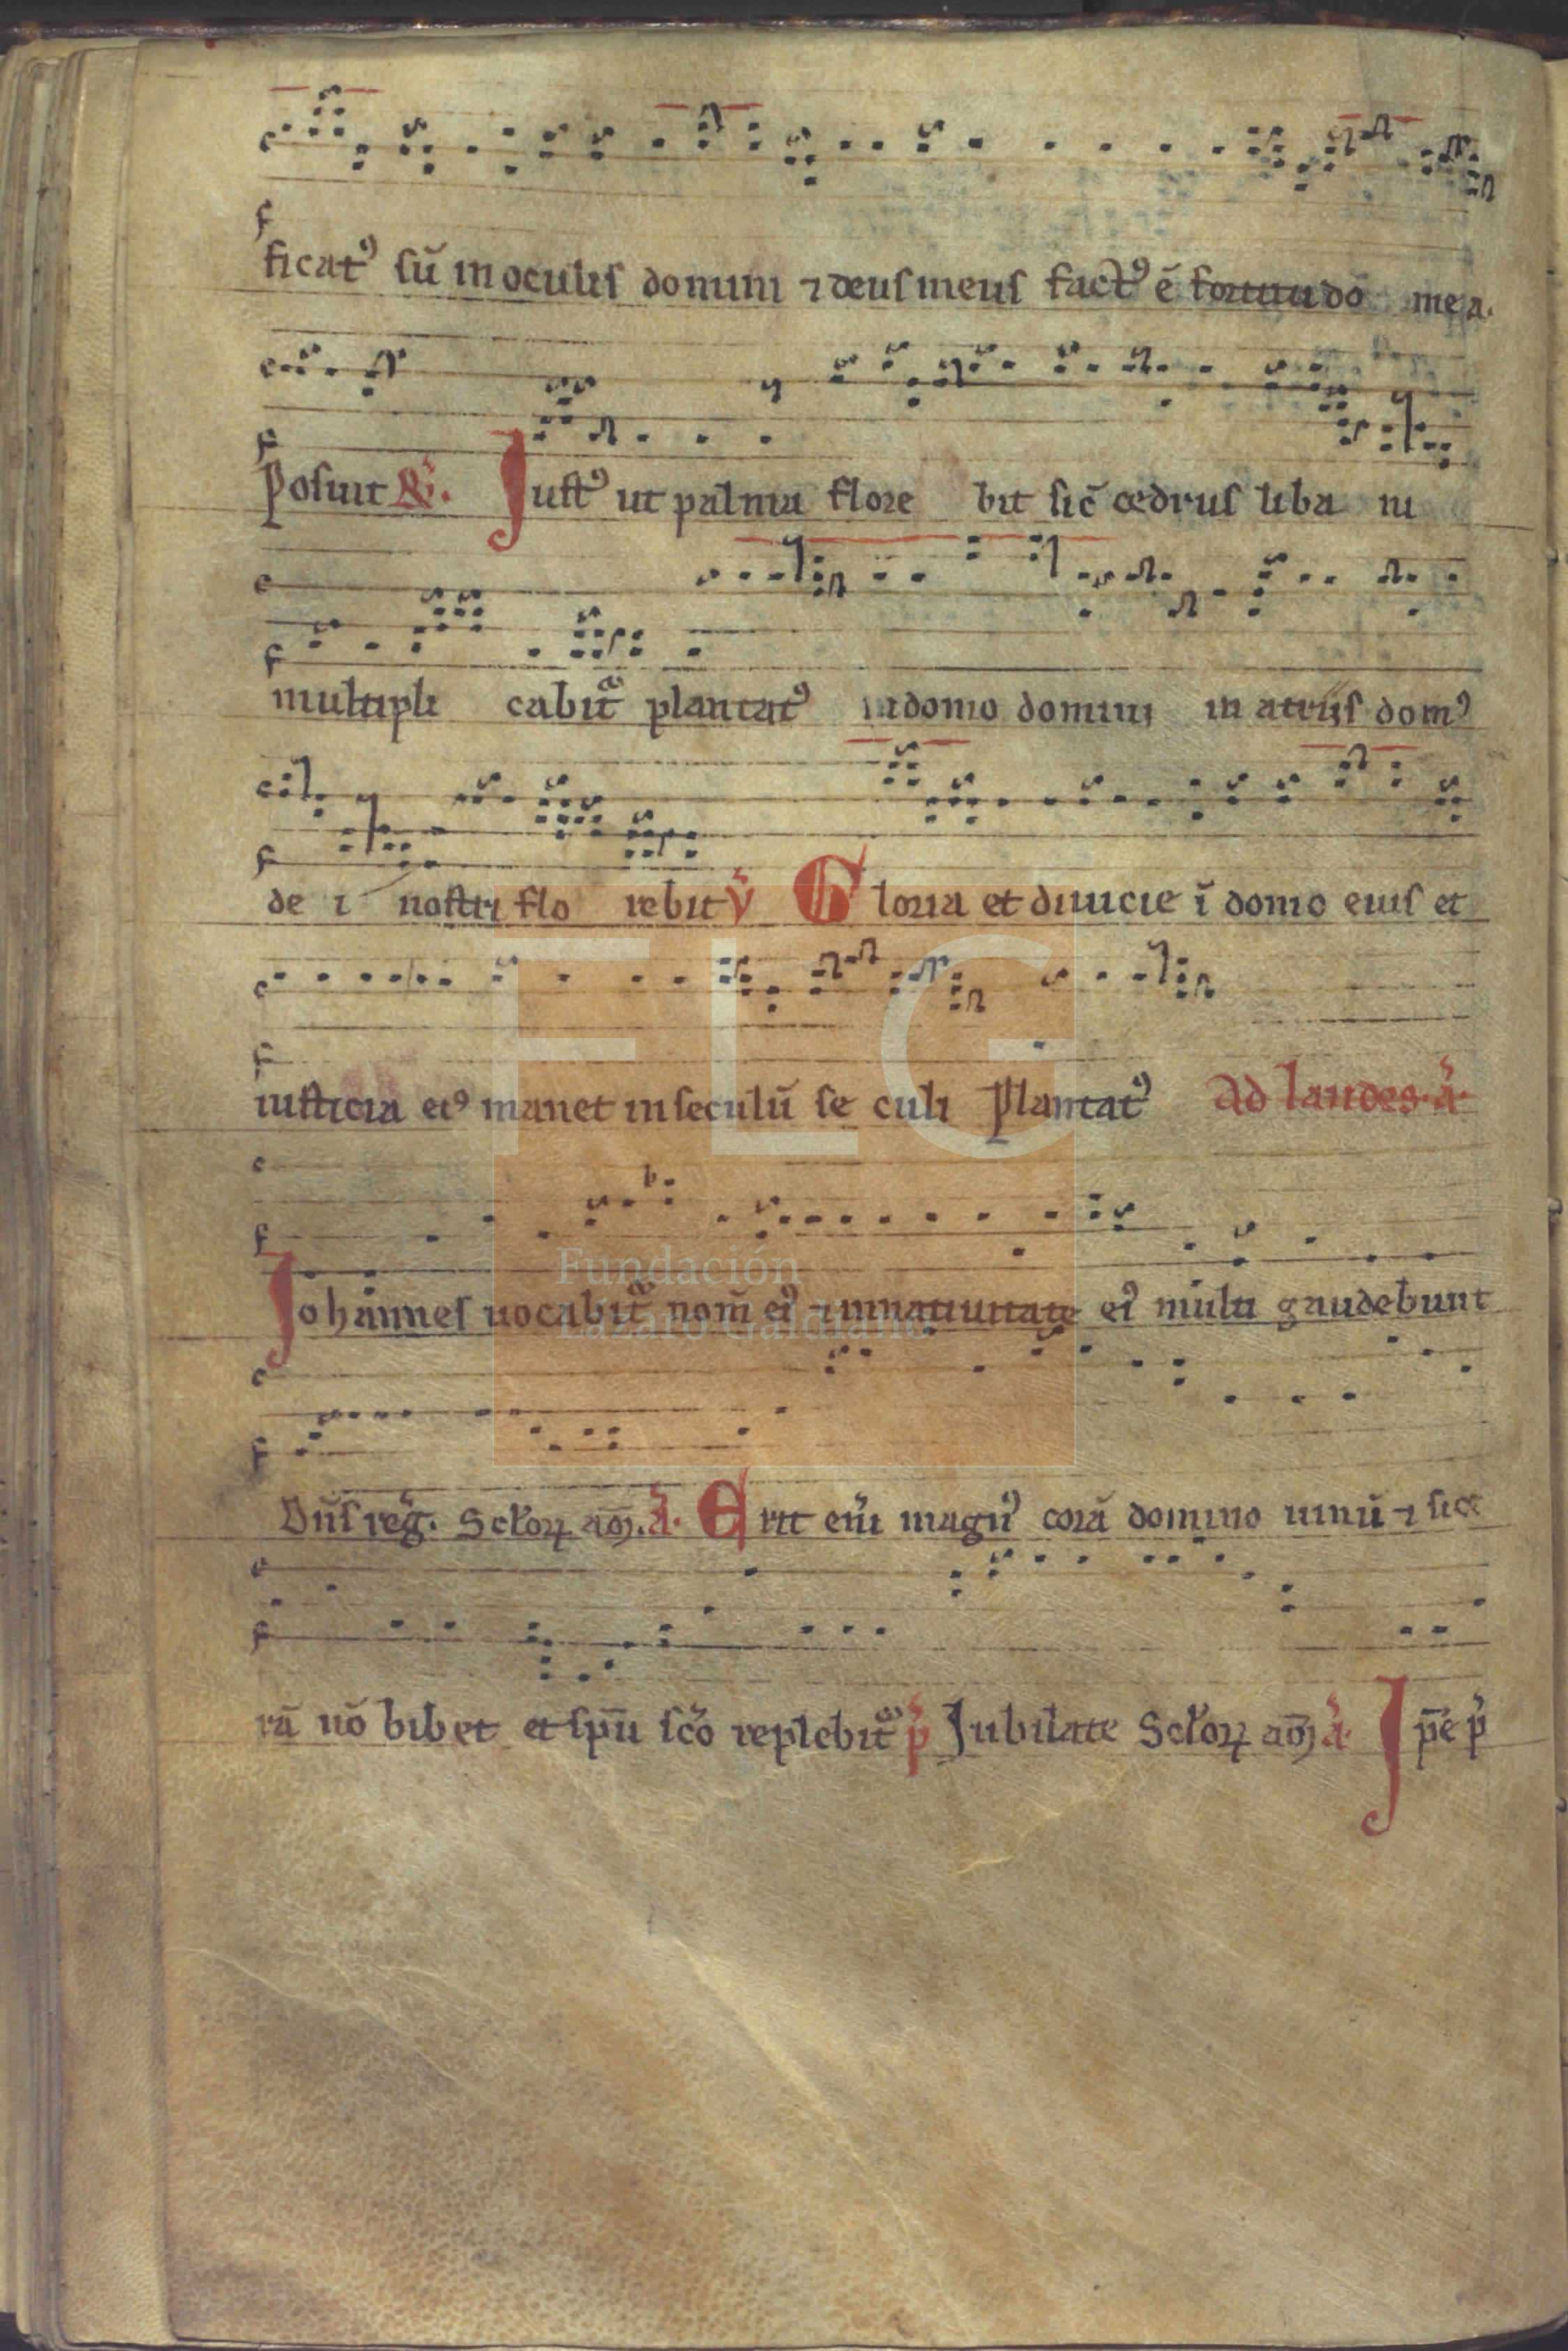 ficatꝰ sũ in oculis domini ⁊ deus meus factꝰ ẽ fortitudo mea.
Posuit R̃. Justꝰ ut palma florebit sic̃ cedrus libani
multiplicabit᷑ plantatꝰ in domo domini in atriis domꝰ
dei nostri florebit ṽ Gloria et diuicie ĩ domo eius et
iusticia eiꝰ manet in seculũ seculi Plantatꝰ Ad laudes. ã.
Johannes uocabit᷑ nom̃ eiꝰ ⁊ in natiuitate eiꝰ multi gaudebunt
Dñs reg̃. Sc̃loꝝ am̃. ã. Erit eñi magnꝰ corã domino uinũ ⁊ sice
rã nõ bibet et sp̃u sc̃o replebit᷑ p̃ Jubilate Sc̃loꝝ am̃ ã. Jp̃e p̃
FLG
Fundación
Lázaro Galdiano